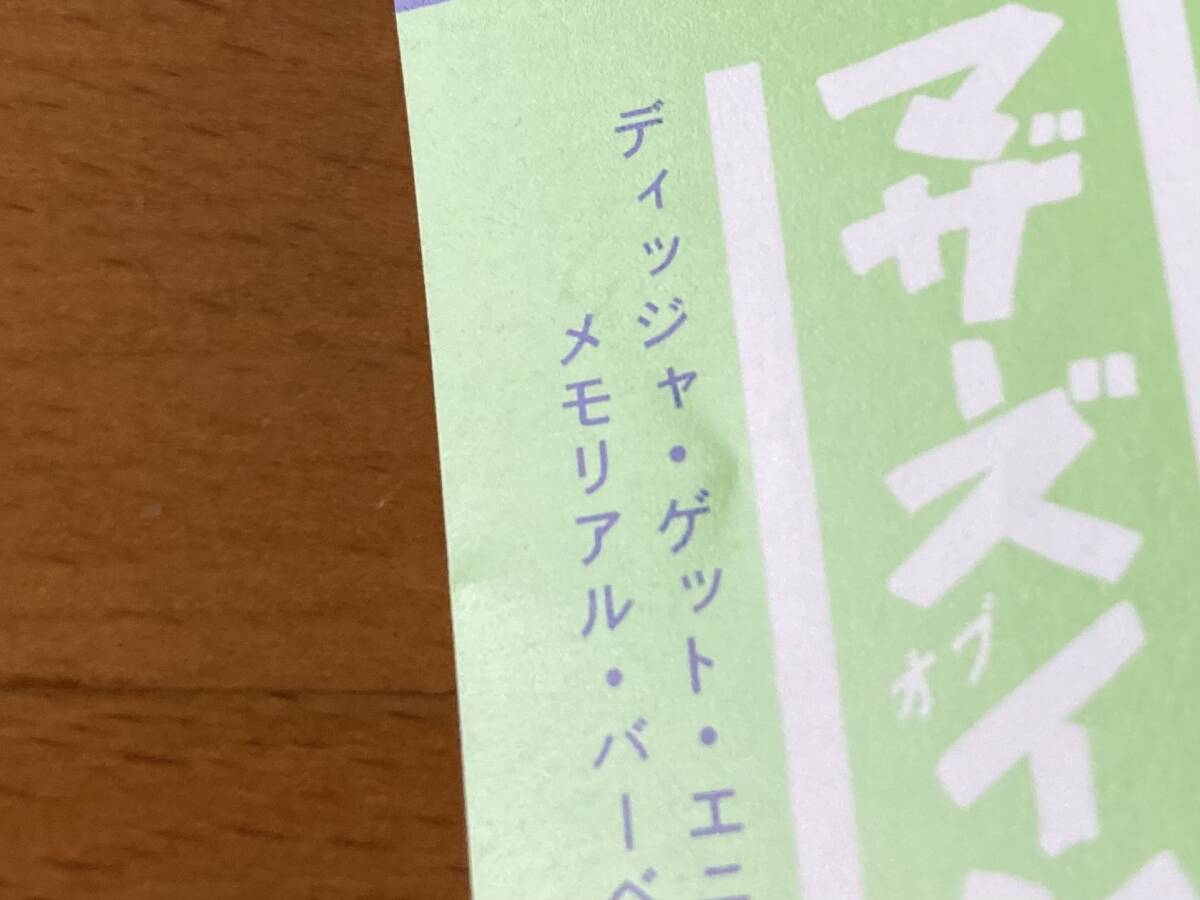 マザーズ
オブ
イン
ディッジャ・ゲット・エニ
メモリアル・バーベ